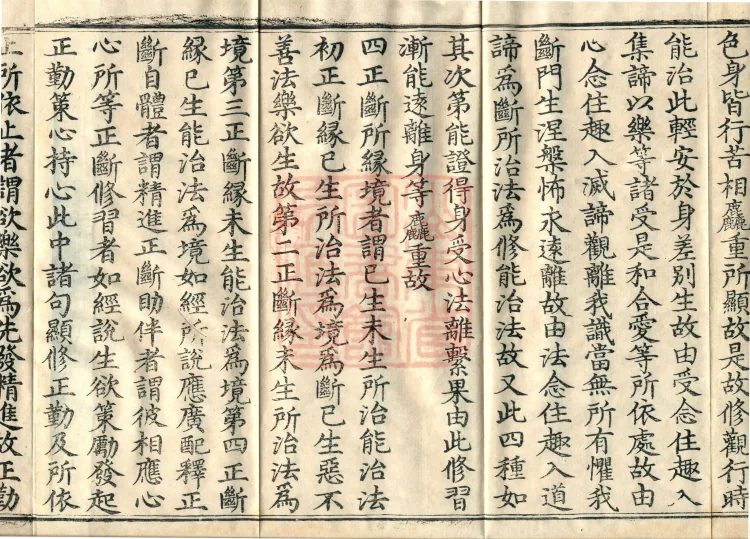 色身皆行苦相麤重所顯故是故修觀行時
能治此輕安於身差別生故由受念住趣入
集諦以樂等諸受是和合愛等所依處故由
心念住趣入滅諦觀離我識當無所有懼我
斷門生涅槃怖永遠離故由法念住趣入道
諦爲斷所治法爲修能治法故又此四種如
其次第能證得身受心法離繫果由此修習
漸能遠離身等麤重故
四正斷所緣境者謂已生未生所治能治法
初正斷緣已生所治法爲境爲斷已生惡不
善法樂欲生故第二正斷緣未生所治法爲
境第三正斷緣未生能治法爲境第四正斷
緣已生能治法爲境如經所說應廣配釋正
斷自體者謂精進正斷助伴者謂彼相應心
心所等正斷修習者如經說生欲策勵發起
正勤策心持心此中諸句顯修正勤及所依
止所依止者謂欲樂欲爲先發精進故正勤